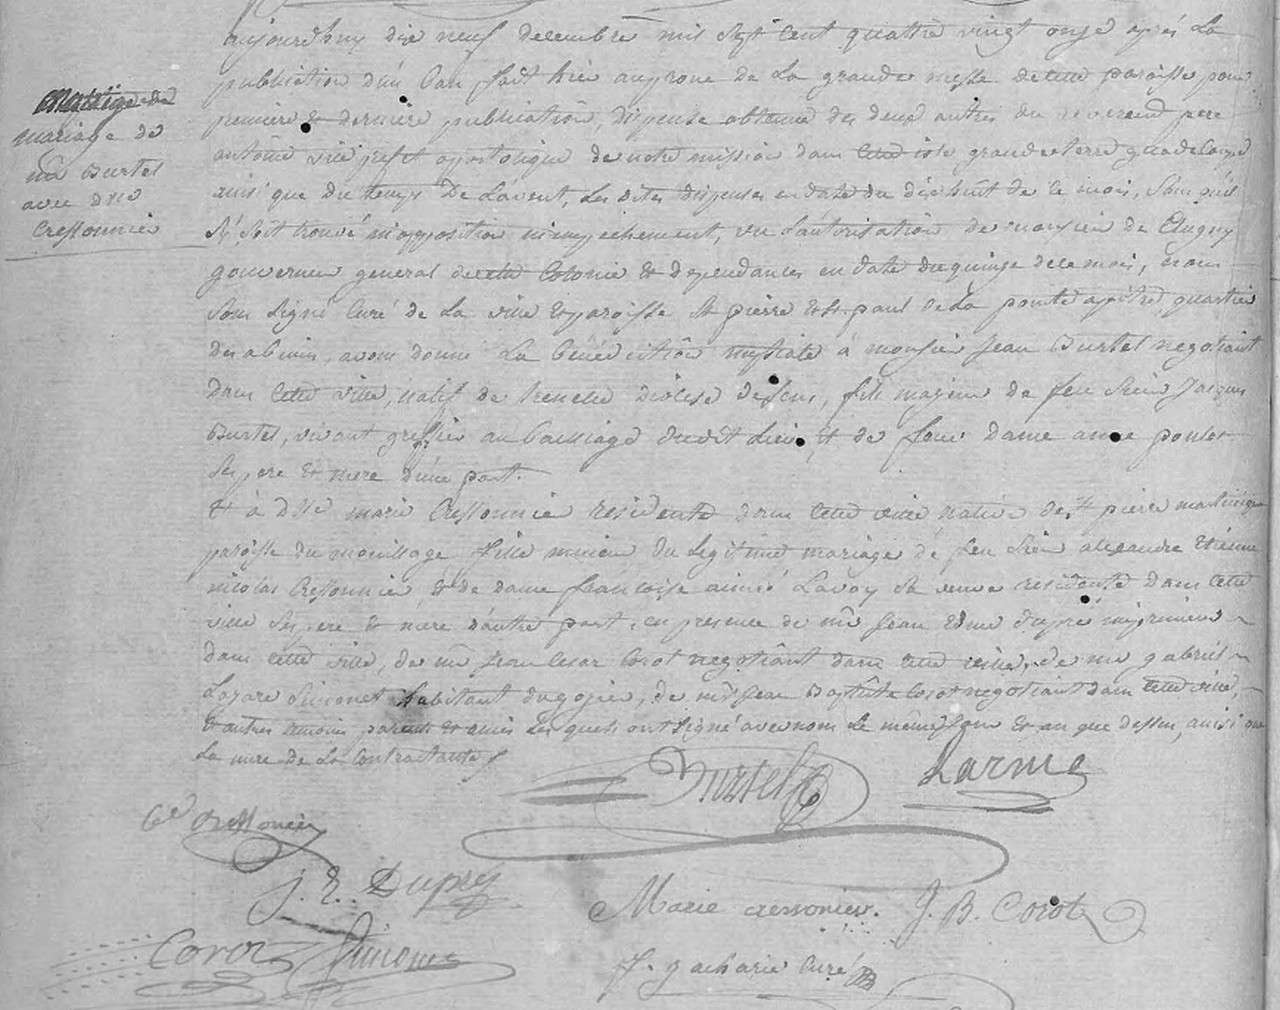 mariage de
mr Burtel
avec dlle
Cressonnier
aujourdhuy dix neuf decembre mil sept cent quattre vingt onze après la
publication d'un ban fait hier au prone de la grande messe de cette paroisse pour
premiere & derniere publication, dispense obtenue des deux autres du reverend pere
antoine préfet apostolique de notre mission dans cette isle grande terre guadeloupe
ainsi que du temps De L'avent, les dites dispenses en date du dixhuit de ce mois, sans qu'il
se soit trouvé n'opposition n'empechement, vu l'autorisation de monsieur de Clugny
gouverneur general de cette Colonie & dependances en date du quinze de ce mois, nous
sous signé Curé de la ville & paroisse st pierre & st paul de la pointe apitre, quartier
des abimes, avons donné la bénédiction nuptiale à monsieur jean Burtel negotiant
dans cette ville, natif de diocese de sens, fils majeur de feu sieur jacques
Burtel, vivant greffier au bailliage dudit lieu, & de feue dame anne
ses pere & mere d'une part.
& à dlle marie Cressonnier residente dans cette ville native de st pierre martinique
paroisse du mouillage fille mineure du legitime mariage de feu sieur alexandre etienne
nicolas Cressonnier, & de dame françoise aimée Lavoy sa veuve residente dans cette
ville ses pere & mere d'autre part, en presence de mr jean edme dupré imprimeur
dans cette ville, de mr jean cesar Corot negotiant dans cette ville, de mr gabriel
Lazare Simonet habitant du gozier, de mr jean Baptiste Corot negotiant dans cette ville,
& autres temoins parents & amis les quels ont signé avec nous le même jour & an que dessus, ainsi que
la mere de la Contractante
Burtel Larme
Ce Cressonnier
J. E. Dupré
Marie cressonier. J. B. Corot
Corot Simonet
f. zacharie Curé